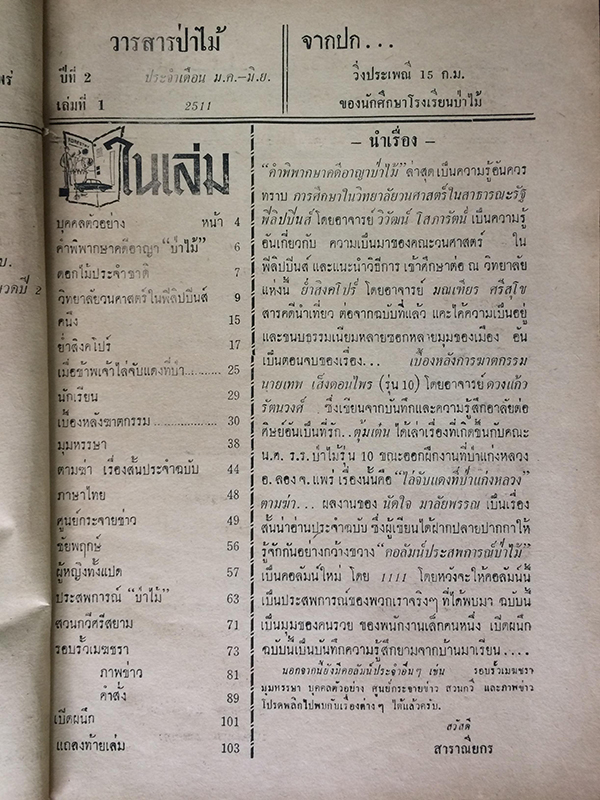 วารสารป่าไม้
ปีที่ 2 ประจำเดือน ม.ค.-มิ.ย.
เล่มที่ 1 2511
จากปก...
วิ่งประเพณี 15 ก.ม.
ของนักศึกษาโรงเรียนป่าไม้
ในเล่ม
บุคคลตัวอย่าง หน้า 4
คำพิพากษาคดีอาญา "ป่าไม้" 6
ดอกไม้ประจำชาติ 7
วิทยาลัยวนศาสตร์ในฟิลิปปินส์ 9
คนึง 15
ย่ำสิงคโปร์ 17
เมื่อข้าพเจ้าไล่จับแดงที่ป่า.......... 25
นักเรียน 29
เบื้องหลังฆาตกรรม.................. 30
มุมหรรษา 38
ตามฆ่า เรื่องสั้นประจำฉบับ 44
ภาษาไทย 48
ศูนย์กระจายข่าว 49
ชัยพฤกษ์ 56
ผู้หญิงทั้งแปด 57
ประสพการณ์ "ป่าไม้" 63
สวนกวีศรีสยาม 71
รอบรั้วเมฆชรา 73
ภาพข่าว 81
คำสั่ง 89
เปิดผนึก 101
แถลงท้ายเล่ม 103
– นำเรื่อง –
"คำพิพากษาคดีอาญาป่าไม้" ล่าสุด เป็นความรู้อันควร
ทราบ การศึกษาในวิทยาลัยวนศาสตร์ในสาธารณะรัฐ
ฟิลิปปินส์ โดยอาจารย์ วิวัฒน์ โสภารัตน์ เป็นความรู้
อันเกี่ยวกับ ความเป็นมาของคณะวนศาสตร์ ใน
ฟิลิปปินส์ และแนะนำวิธีการ เข้าศึกษาต่อ ณ วิทยาลัย
แห่งนี้ ย่ำสิงคโปร์ โดยอาจารย์ มณเฑียร ศรีสุโข
สารคดีนำเที่ยว ต่อจากฉบับที่แล้ว แคะไค้ความเป็นอยู่
และขนบธรรมเนียมหลายซอกหลายมุมของเมือง อัน
เป็นตอนจบของเรื่อง... เบื้องหลังการฆาตกรรม
นายเทพ เส็งดอนไพร (รุ่น 10) โดยอาจารย์ ดวงแก้ว
รัตนวงศ์ ซึ่งเขียนจากบันทึกและความรู้สึกอาลัยต่อ
ศิษย์อันเป็นที่รัก..ตุ้มเต้น ได้เล่าเรื่องที่เกิดขึ้นกับคณะ
น.ศ. ร.ร. ป่าไม้รุ่น 10 ขณะออกฝึกงานที่ป่าแก่งหลวง
อ. ลอง จ. แพร่ เรื่องนั้นคือ "ไล่จับแดงที่ป่าแก่งหลวง"
ตามฆ่า... ผลงานของ นัดใจ มาลัยพรรณ เป็นเรื่อง
สั้นน่าอ่านประจำฉบับ ซึ่งผู้เขียนได้ฝากปลายปากกาให้
รู้จักกันอย่างกว้างขวาง "คอลัมน์ประสพการณ์ป่าไม้"
เป็นคอลัมน์ใหม่ โดย 1111 โดยหวังจะให้คอลัมน์นี้
เป็นประสพการณ์ของพวกเราจริงๆ ที่ได้พบมา ฉบับนี้
เป็นมุมของคนรวย ของพนักงานเล็กคนหนึ่ง เปิดผนึก
ฉบับนี้เป็นบันทึกความรู้สึกยามจากบ้านมาเรียน....
นอกจากนี้ยังมีคอลัมน์ประจำอื่นๆ เช่น รอบรั้วเมฆชรา
มุมหรรษา บุคคลตัวอย่าง ศูนย์กระจายข่าว สวนกวี และภาพข่าว
โปรดพลิกไปพบกับเรื่องต่างๆ ได้แล้วครับ.
สวัสดี
สาราณียกร